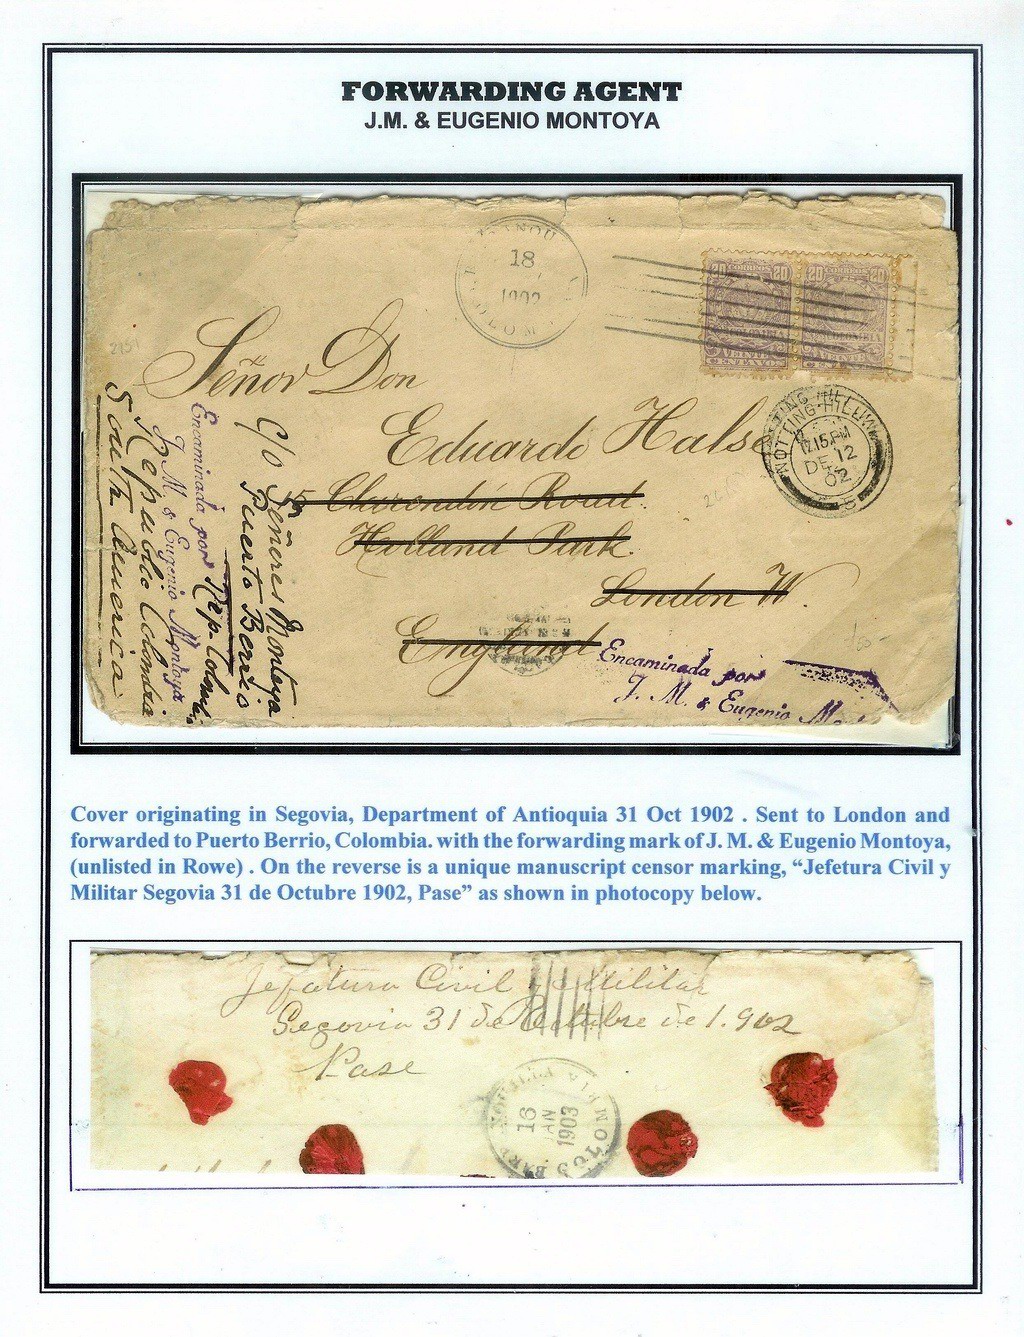 FORWARDING AGENT
J.M. & EUGENIO MONTOYA
18
1902
COLOM
20 CORREOS 20
20 CORREOS 20
COLOMBIA
Señor Don
Eduardo Halse
15 Clarendon Road
Holland Park
London W.
England
NOTTING-HILL.W
12.15PM
DE 12
02
c/o Señeres Montoya
Puerto Berrio
Rep. Colombia
Republic Colombia
South America
Encaminada por
J. M. & Eugenio Montoya
Encaminada por
J. M. & Eugenio Mo
Cover originating in Segovia, Department of Antioquia 31 Oct 1902 . Sent to London and
forwarded to Puerto Berrio, Colombia. with the forwarding mark of J. M. & Eugenio Montoya,
(unlisted in Rowe) . On the reverse is a unique manuscript censor marking, “Jefetura Civil y
Militar Segovia 31 de Octubre 1902, Pase” as shown in photocopy below.
Jefatura Civil y Militar
Segovia 31 de Octubre de 1.902
Pase
16
JAN
1903